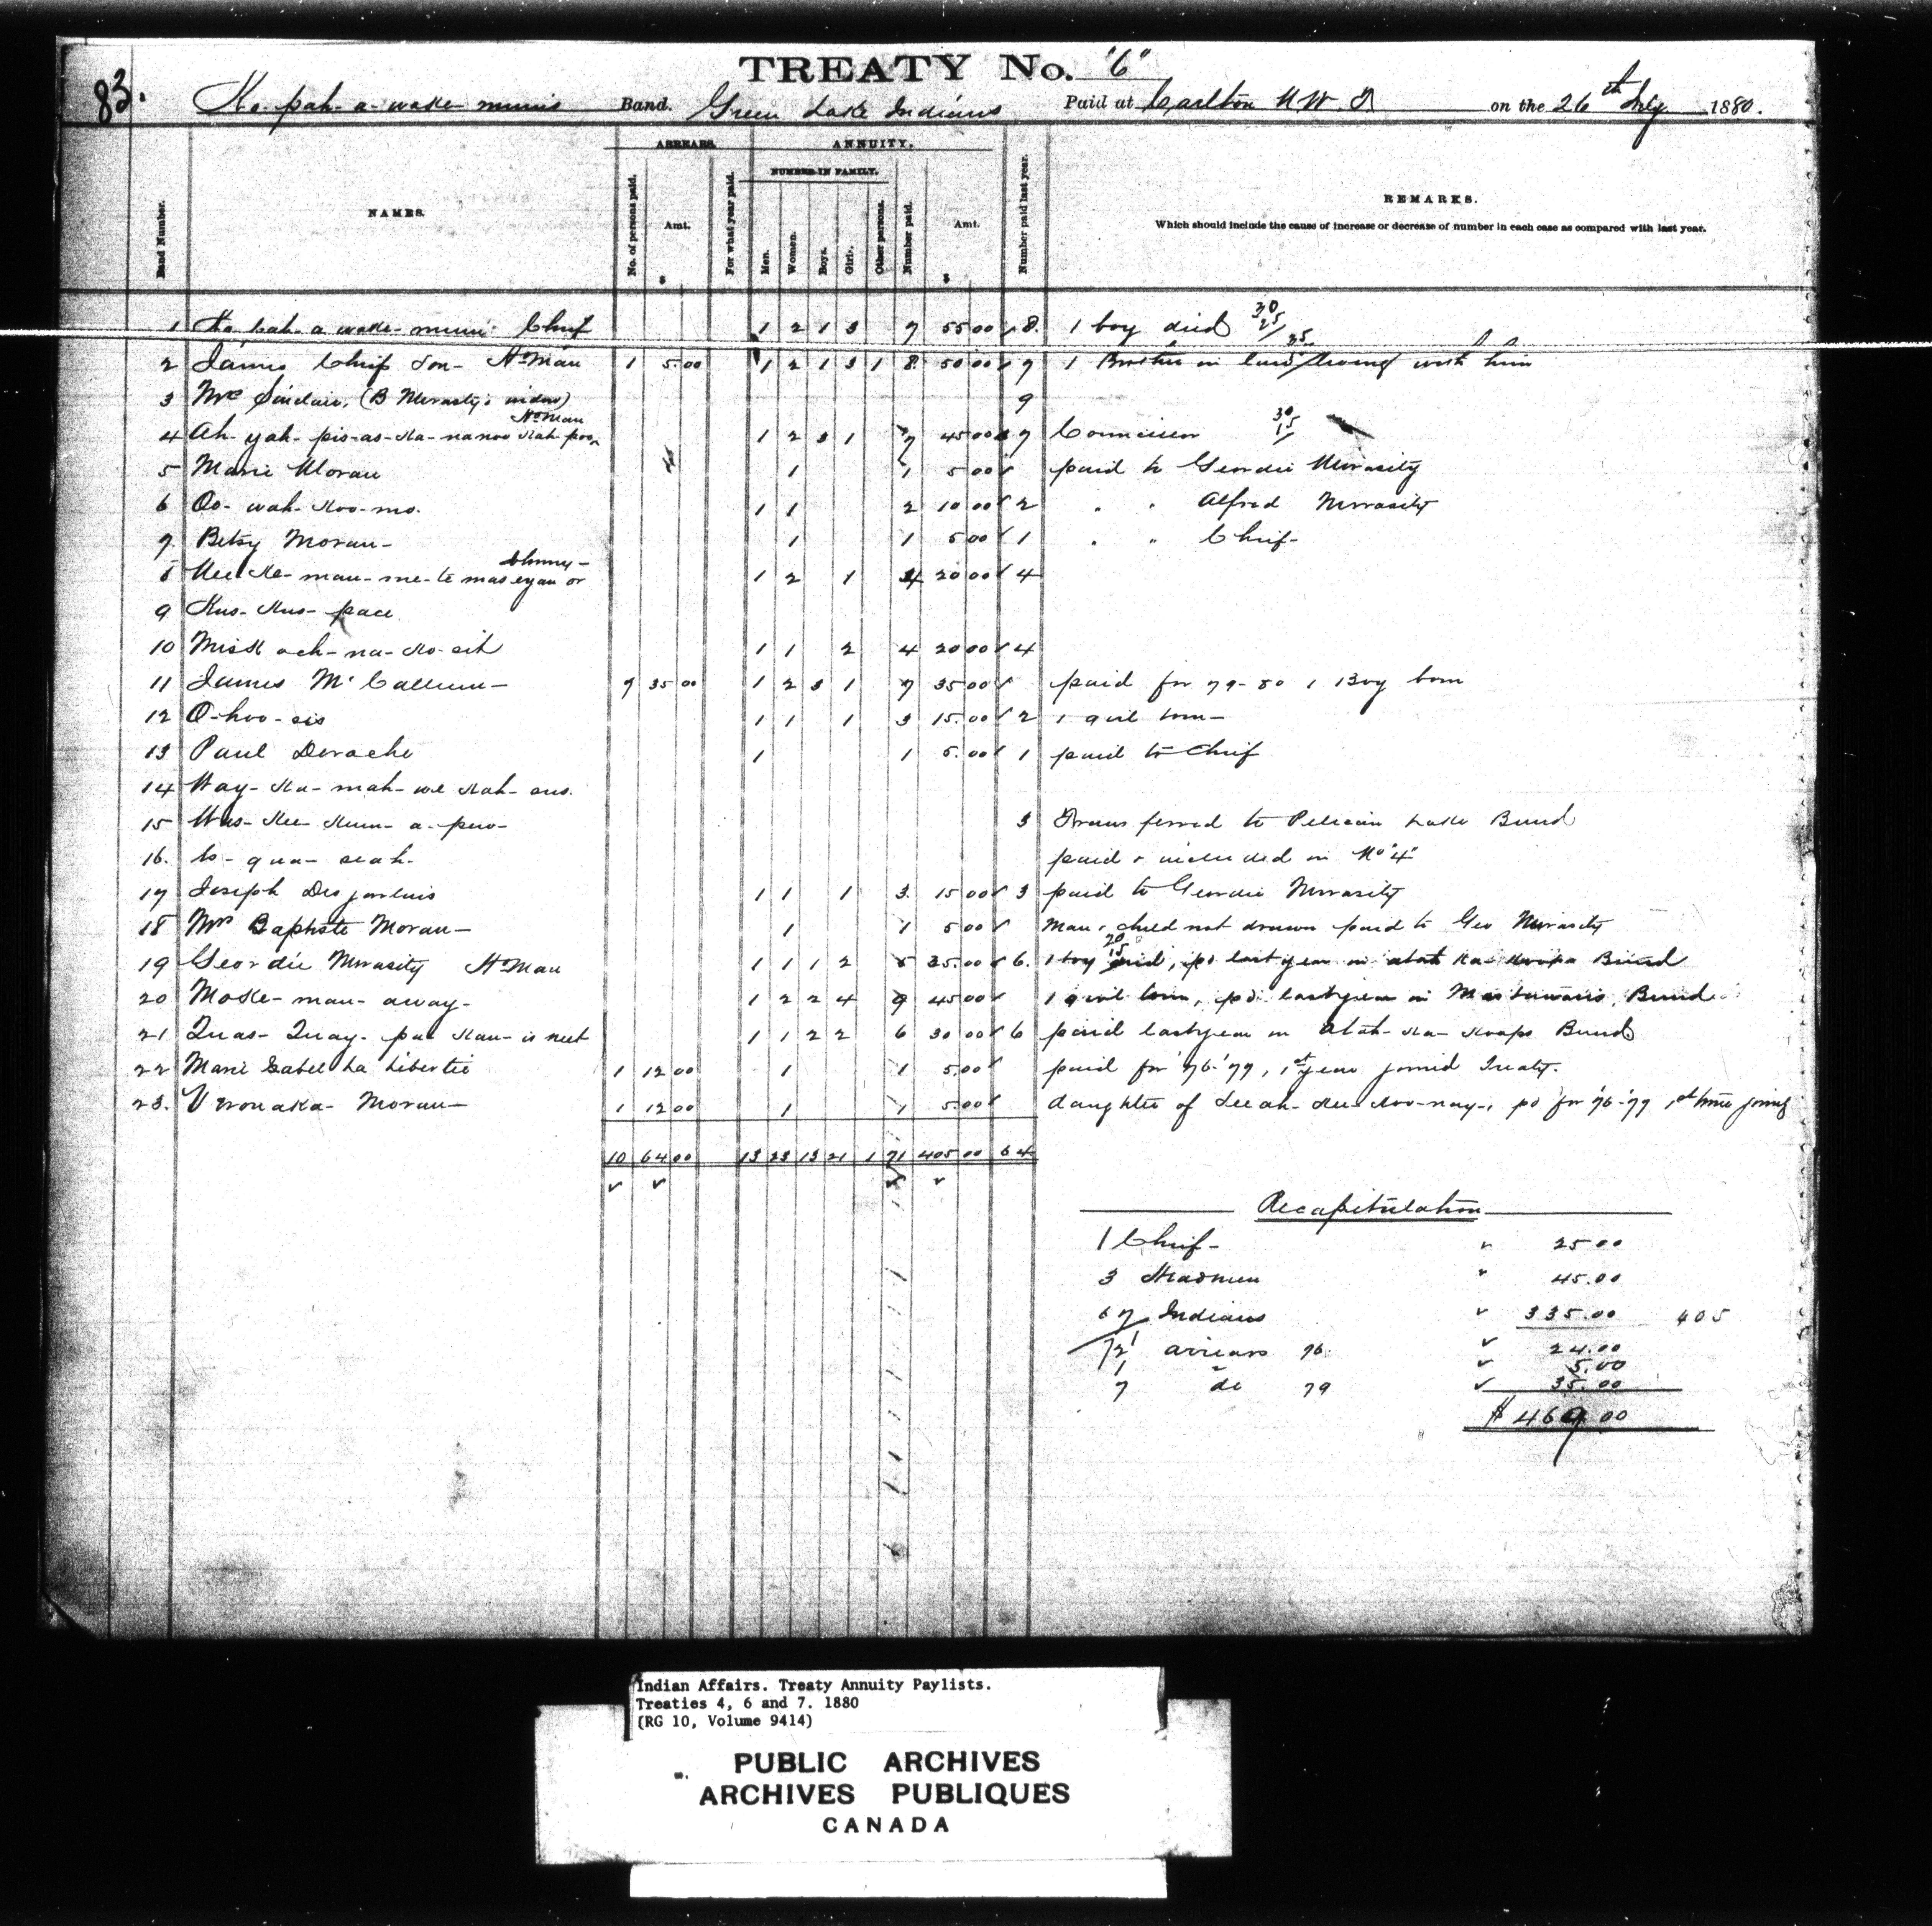 TREATY No. "6"
83. Ko-pah-a-wake-munis Band. Green Lake Indians Paid at Carlton N.W.T on the 26th July 1880.
ARREARS. ANNUITY.
NUMBER IN FAMILY.
Band Number. NAMES. No. of persons paid. Amt. For what year paid. Men. Women. Boys. Girls. Other persons. Number paid. Amt. Number paid last year. REMARKS.
Which should include the cause of increase or decrease of number in each case as compared with last year.
$ $
1 Chief 1 2 1 3 7 55 00 8. 1 boy died 30 25
2 James Chief Son- HdMan 1 5.00 1 2 1 3 1 8 50 00 9 1 Brother in law living with him 25
3 Mrs Sinclair, (B Merasty's widow) 9
HdMan
4 Ah-yah-pis-as-Ka-nanoo Kah-poo 1 2 3 1 7 45 00 7 Councillor 30 15
5 Marie Moran 1 1 5 00 paid to Geordie Merasity
6 Oo-wah-Koo-mo. 1 1 2 10 00 2 " " Alfred Merasity
7 Betsy Moran- 1 1 5 00 1 " " Chief-
Johnny-
8 Nee Ke-mau-me-te mas eyan or 1 2 1 4 20 00 4
9 Kus-Kus-pace
10 Misk ach-na-Ko-sit 1 1 2 4 20 00 4
11 James McCallum- 7 35 00 1 2 3 1 7 35 00 paid for 79-80 1 Boy born
12 O-hoo-sis 1 1 1 3 15.00 2 1 girl born-
13 Paul Derache 1 1 5.00 1 paid to Chief
14 Way-Ka-mah-we Kah-ous.
15 Wus-Kee Kum-a-pew- 3 Transferred to Pelican Lake Band
16. paid & included in No "4"
17 Joseph Desjarlais 1 1 1 3. 15 00 3 paid to Geordie Merasity
18 Mrs Baptiste Moran- 1 1 5 00 Man & child not drawn paid to Geo Merasity
20 15
19 Geordie Merasity HdMan 1 1 1 2 5 35.00 6. 1 boy died, pd last year in Atah Ka Koops Band
20 Moke-man-away- 1 2 2 4 9 45 00 1 girl born, pd. last year in Mistawasis Band
21 Quas-Quay-pa Kau-is neet 1 1 2 2 6 30 00 6 paid last year in Atah-Ka-Koops Band
22 Marie Isabel La Libertie 1 12 00 1 1 5.00 paid for '76-'79, 1st year joined Treaty.
23. Veronaka Moran- 1 12 00 1 1 5.00 daughter of pd for '76-'79 1st time joining
10 64 00 13 23 13 21 1 71 405 00 64
Recapitulation
1 Chief- " 25 00
3 Headmen " 45.00
67 Indians 335.00 405
71
2 arrears 76 24.00
1 " 5.00
7 do 79 35.00
$469.00
Indian Affairs. Treaty Annuity Paylists.
Treaties 4, 6 and 7. 1880
(RG 10, Volume 9414)
PUBLIC ARCHIVES
ARCHIVES PUBLIQUES
CANADA